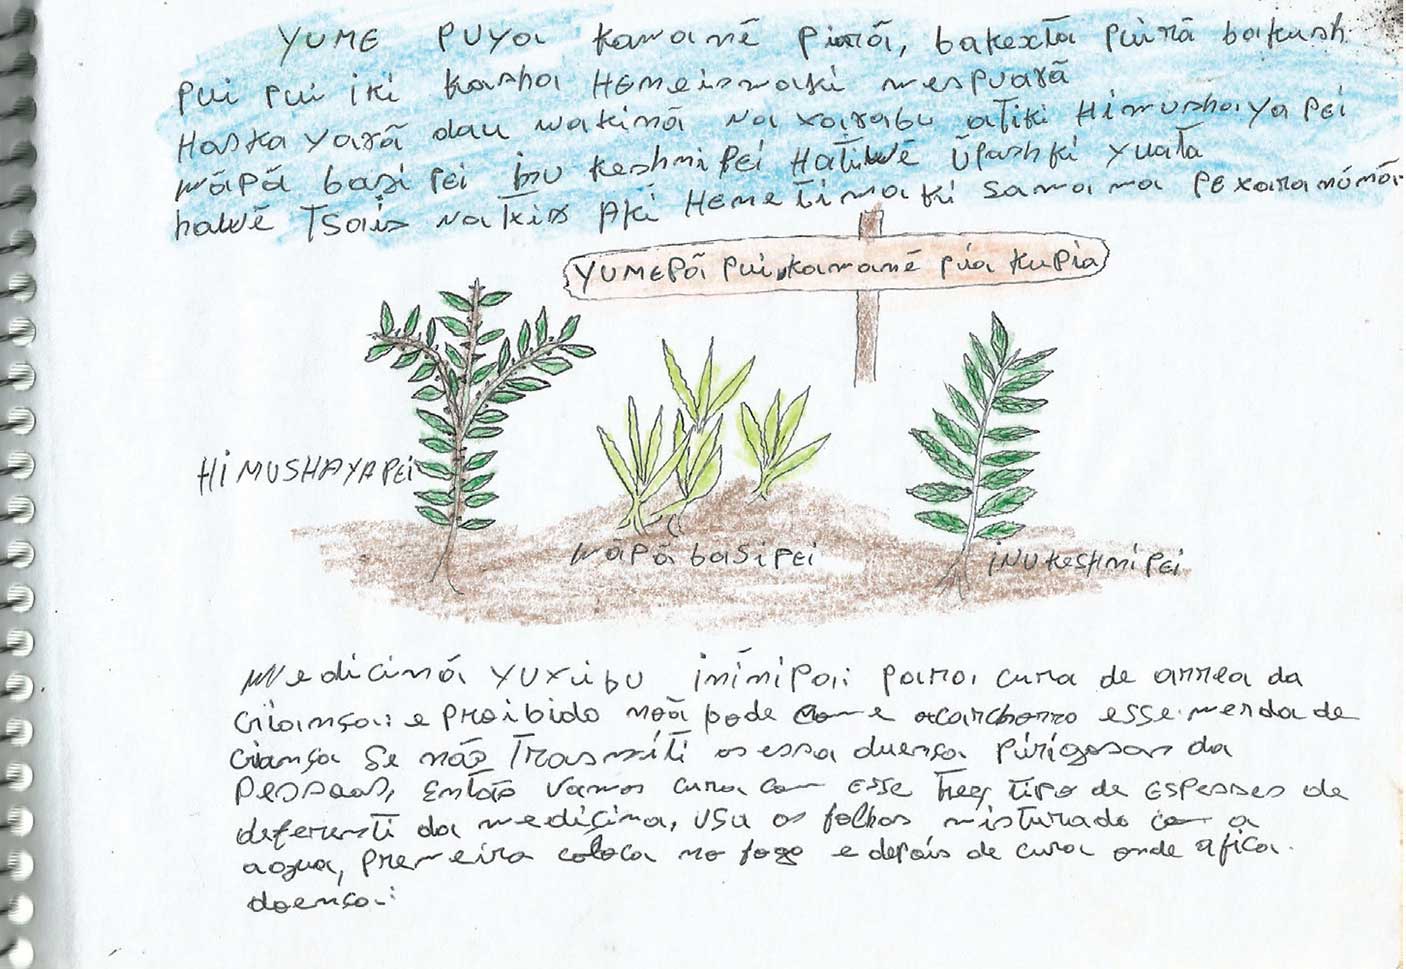 YUME PUYa kamanē piarā, bakextā puirā bakush
pui pui iki kasha HEMEismaki mespuarā
Haska yarā dau wakinā na xarabu atiki Himushaya pei
wāpā basi pei inu keshni pei Hatiwē ūpashki yuatā
hawē Tsais nakxis Aki HEMETimaki samama PE xaramāmāi
YUMEPā pui, kamanē pia kupia
HiMUSHAYAPEi
wāpā basi pEi
iNUKESHNiPEi
Medicinā yuxibu ininipa: para, cura de arrea da
Criança: e proibido noā pode come acarchorro esse merda de
criança se não Trasmiti os essa duença pirigosas da
pessoas, Então vamos cura com esse Treg tipo de Espesses de
deferenti da mediçina, usa os folhas misturado com a
aogua, premeira coloca no fogo e depois de cura onde a fica.
doença: